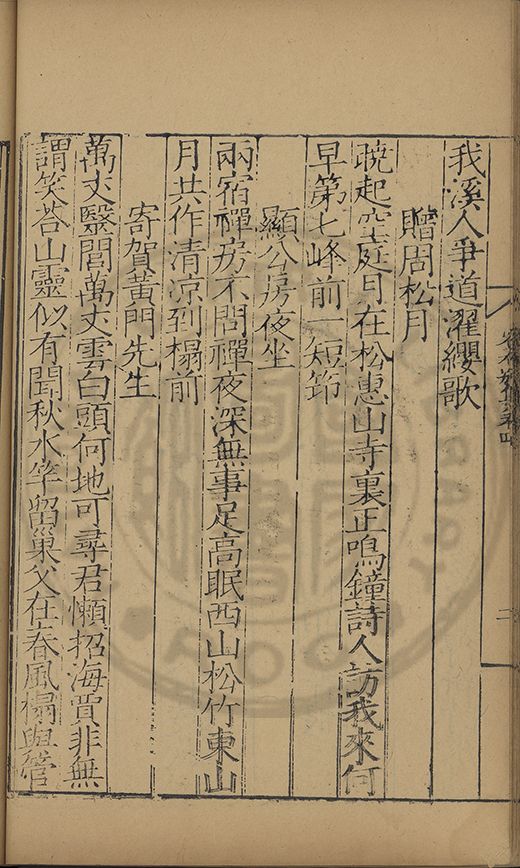 我溪人爭道濯纓歌
贈周松月
曉起空庭月在松惠山寺裏正鳴鐘詩人訪我來何
早第七峰前一短筇
顯公房夜坐
兩宿禪房不問禪夜深無事足高眠西山松竹東山
月共作清涼到榻前
寄賀黃門先生
萬丈醫閭萬丈雲白頭何地可尋君懶招海賈非無
謂笑荅山靈似有聞秋水竿留巢父在春風榻與管